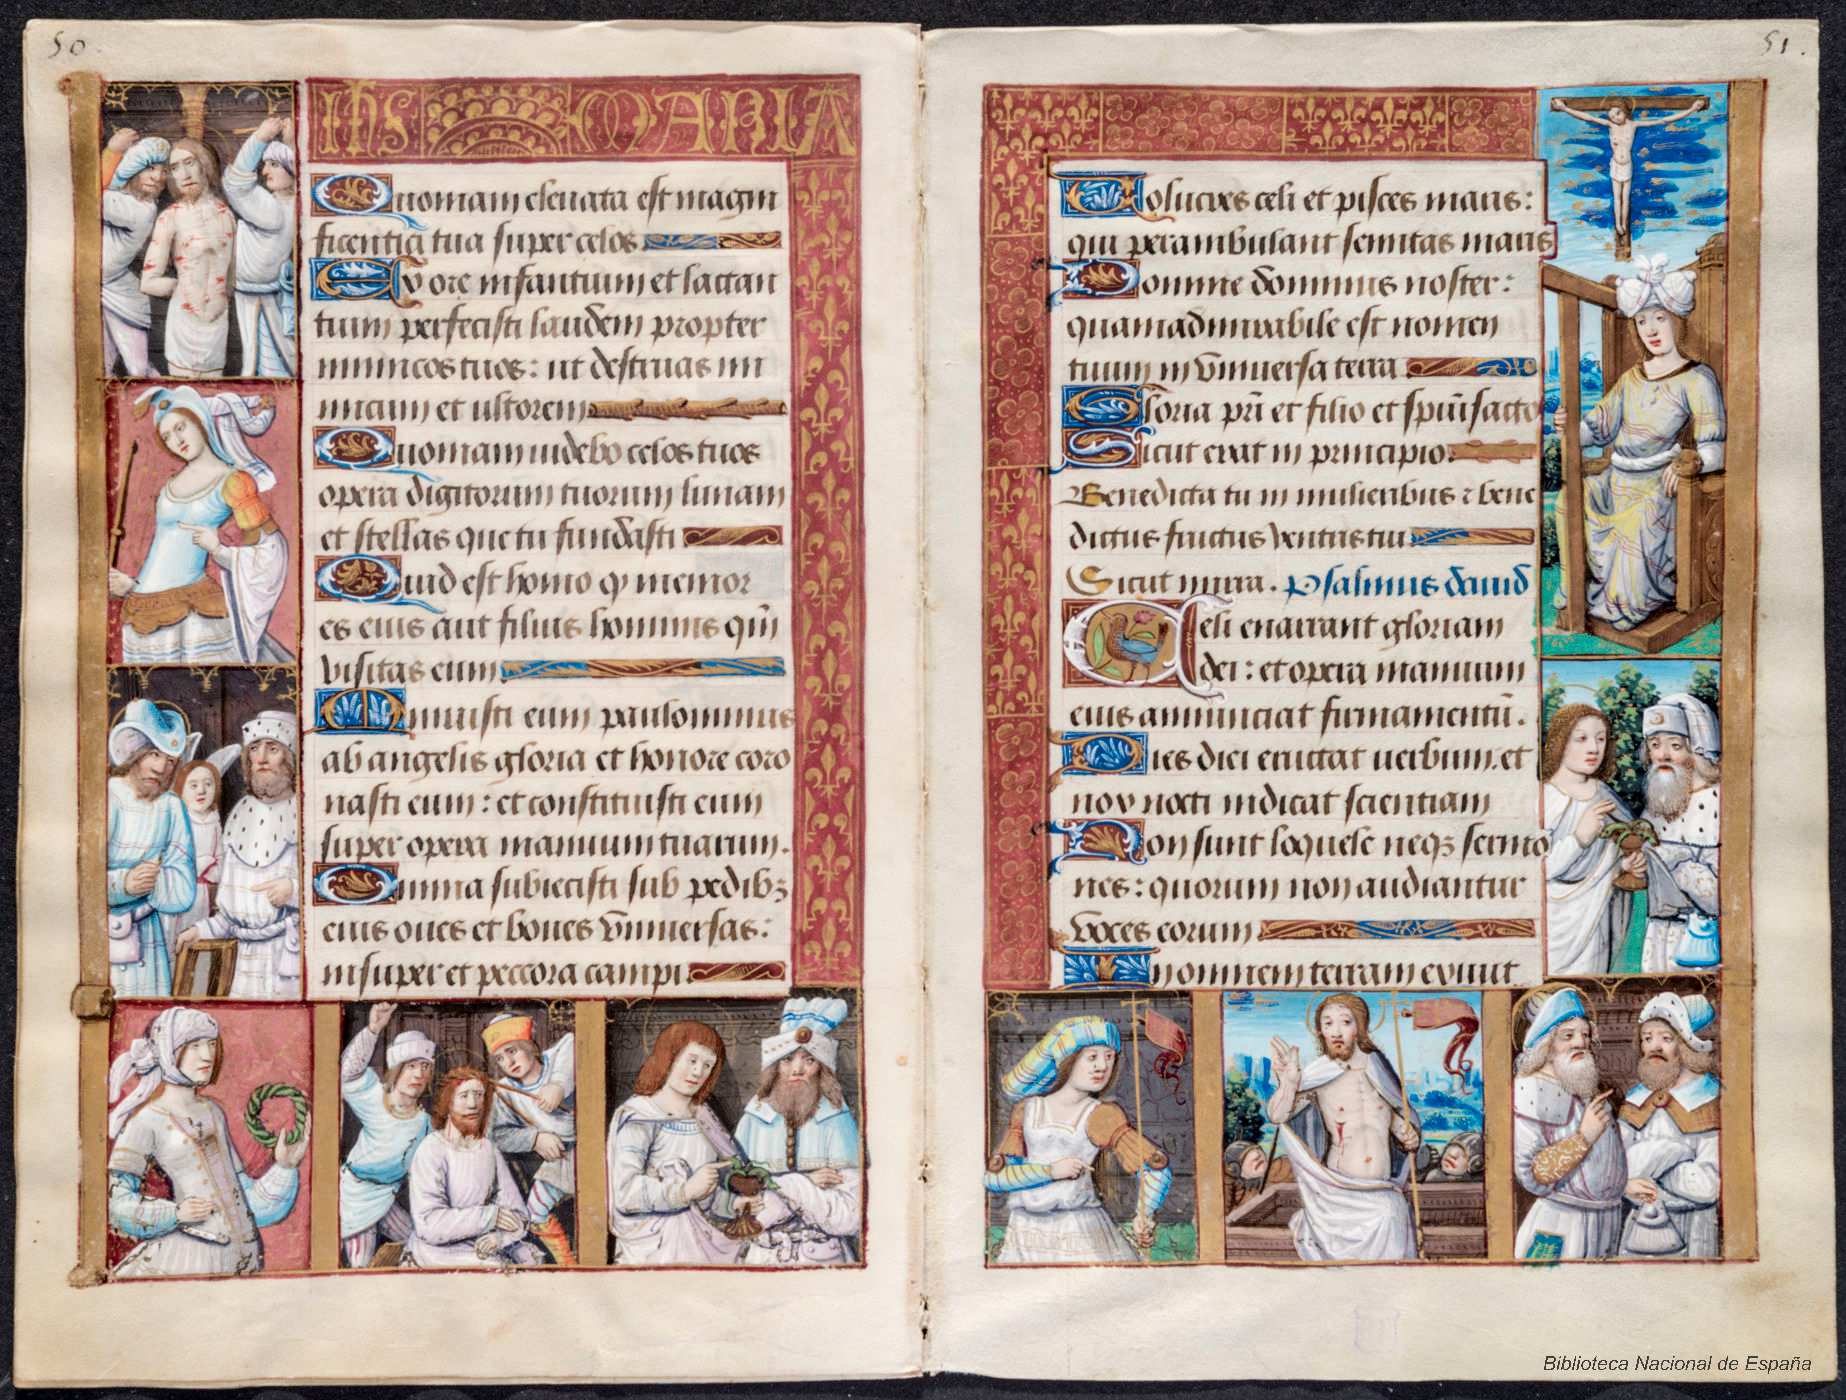 50.
ihs MARIA
Quoniam eleuata est magni
ficentia tua super celos
Ex ore infantium et lactan
tium perfecisti laudem propter
inimicos tuos: ut destruas ini
micum et ultorem
Quoniam uidebo celos tuos
opera digitorum tuorum lunam
et stellas que tu fundasti
Quid est homo q memor
es eius aut filius hominis qm̄
visitas eum
Minuisti eum paulominus
ab angelis gloria et honore coro
nasti eum: et constituisti eum
super opera manuum tuarum.
Omnia subiecisti sub pedibꝫ
eius oues et boues vniuersas:
insuper et peccora campi
51.
Volucres celi et pisces maris:
qui perambulant semitas maris
Domine dominus noster:
quam admirabile est nomen
tuum in vniuersa terra
Gloria pr̄i et filio et spiūi sacto
Sicut erat in principio.
Benedicta tu in mulieribus ⁊ bene
dictus fructus ventris tui
Sicut mirra. Psalmus dauid
Celi enarrant gloriam
dei: et opera manuum
eius annunciat firmamentū.
Dies diei eructat uerbum. et
nox nocti indicat scientiam
Non sunt loquele neqꝫ sermo
nes: quorum non audiantur
voces eorum
In omnem terram exiuit
Biblioteca Nacional de España